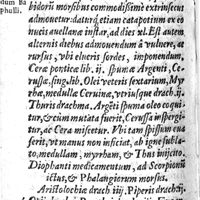 dum Ba
phulli.
bidorū morsibus commodissimè extrinsecus
admouetur. datur & etiam catapotium ex eo
nucis auellanæ instar, ad dies xl. Est autem
alternis diebus admouendum à vulnere, at
rursus, vbi elueris sordes, imponendum.
Ceræ ponticæ lib. ij. spumæ Argenti, Ce-
russæ, sing. lib. Olei veteris sextarium, Myr
rhæ, medullæ Ceruinæ, vtriusque drach. ij.
Thuris drachma. Argēti spuma oleo coqui-
tur, & cùm mutata fuerit, Cerussa inspergi-
tur, ac Cera miscetur. Vbi tam spissum eua
serit, vt manus non inficiat, ab igne subla-
to, medullam, myrrham, & Thus inijcito.
Diophanti medicamentum, ad Scorpionū
ictus, & Phalangiorum morsus.
Aristolochiæ drach iiij. Piperis drach ij.